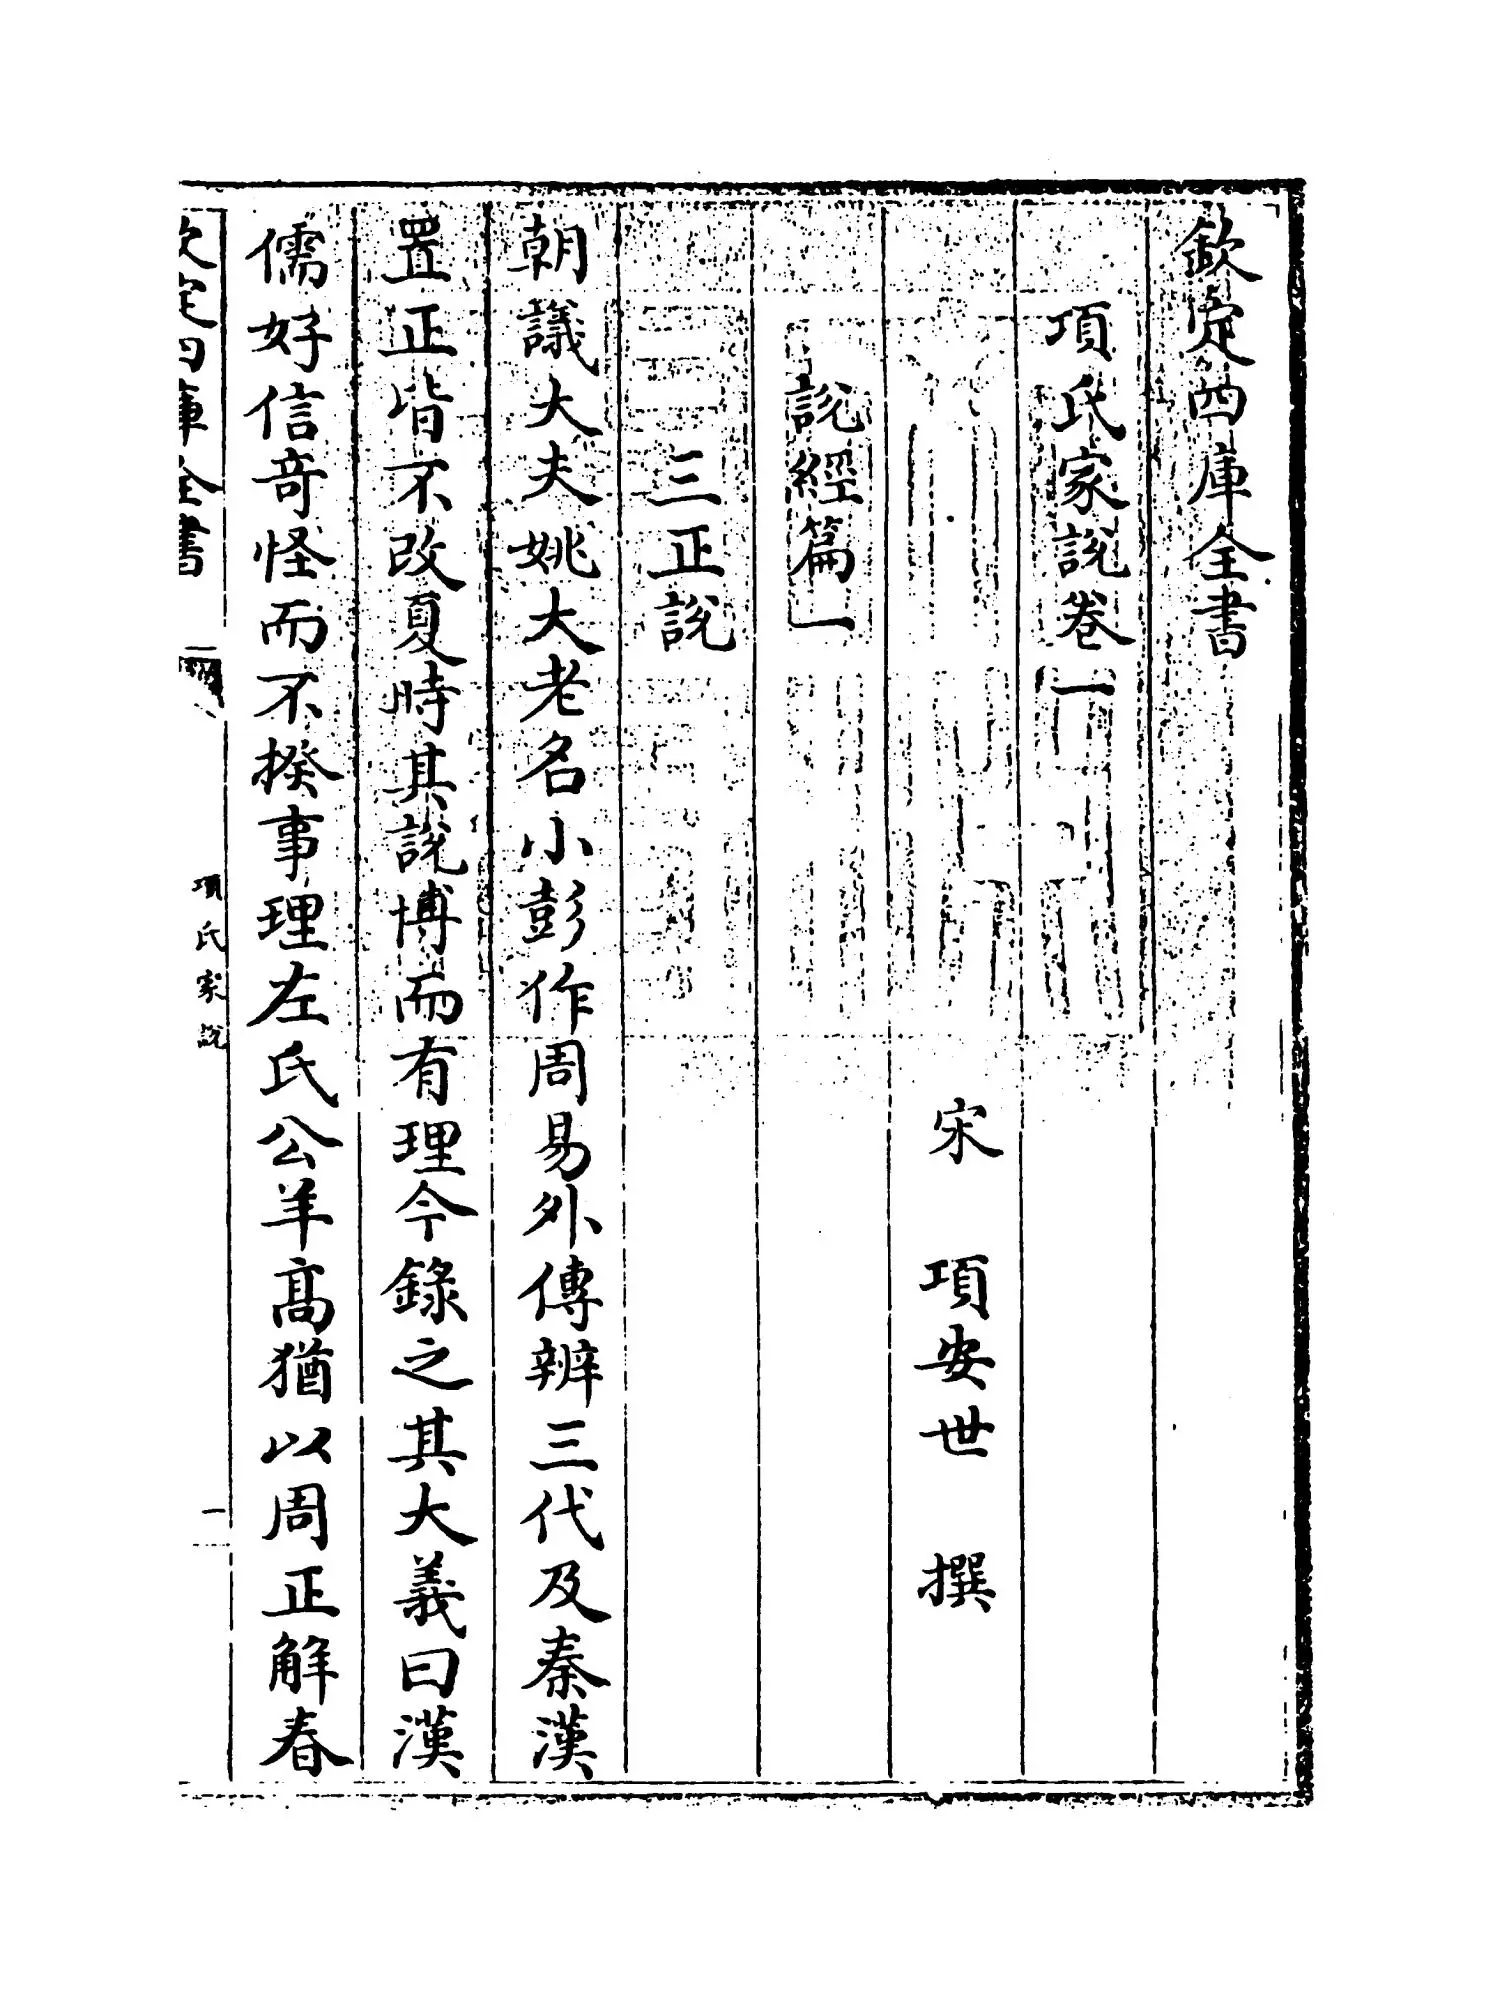 欽定四庫全書
項氏家說卷一
宋 項安世 撰
說經篇一
三正說
朝議大夫姚大老名小彭作周易外傳辨三代及秦漢
置正皆不改夏時其說博而有理今錄之其大義曰漢
儒好信竒怪而不揆事理左氏公羊髙猶以周正解春
欽定四庫全書
項氏家說
一